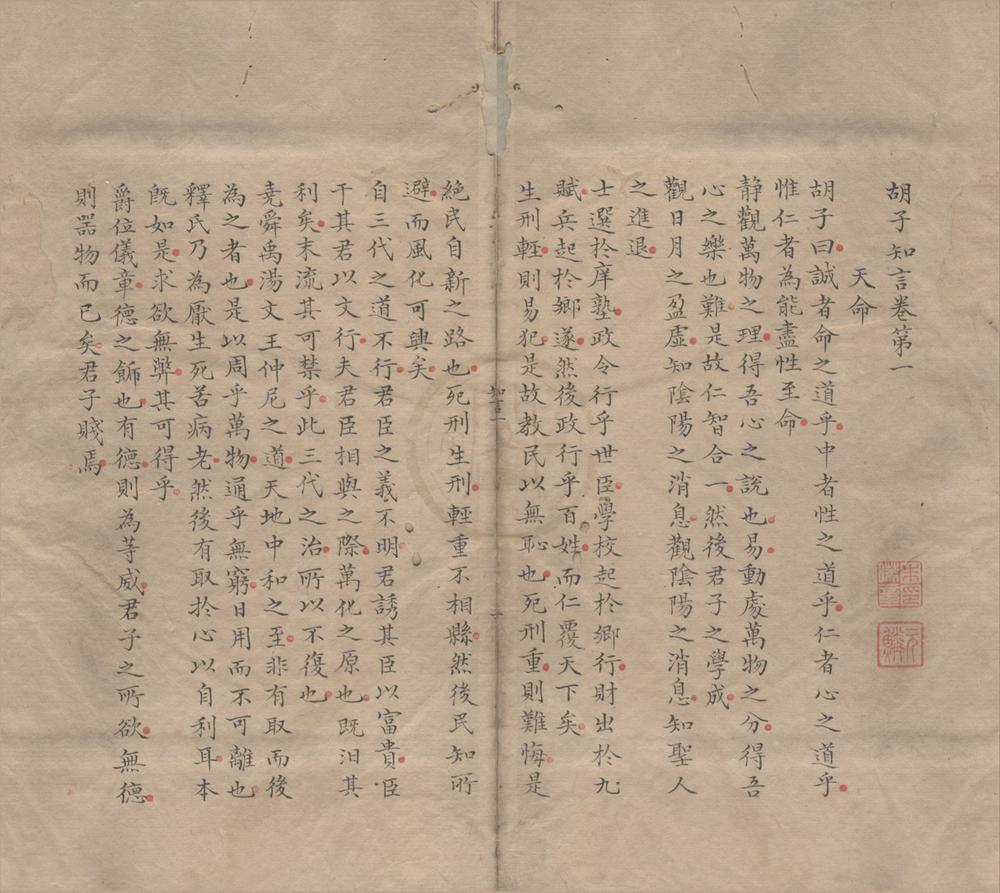 胡子知言卷第一
天命
胡子曰誠者命之道乎中者性之道乎仁者心之道乎
惟仁者為能盡性至命
静觀萬物之理得吾心之說也易動處萬物之分得吾
心之樂也難是故仁智合一然後君子之學成
觀日月之盈虛知陰陽之消息觀陰陽之消息知聖人
之進退
士選於庠塾政令行乎世臣學校起於鄉行財出於九
賦兵起於鄉遂然後政行乎百姓而仁覆天下矣
生刑輕則易犯是故教民以無恥也死刑重則難悔是
知言一
一
絕民自新之路也死刑生刑輕重不相縣然後民知所
避而風化可興矣
自三代之道不行君臣之義不明君誘其臣以富貴臣
干其君以文行夫君臣相與之際萬化之原也既汩其
利矣末流其可禁乎此三代之治所以不復也
堯舜禹湯文王仲尼之道天地中和之至非有取而後
為之者也是以周乎萬物通乎無窮日用而不可離也
釋氏乃為厭生死苦病老然後有取於心以自利耳本
既如是求欲無弊其可得乎
爵位儀章德之飾也有德則為等威君子之所欲無德
則器物而已矣君子賤焉